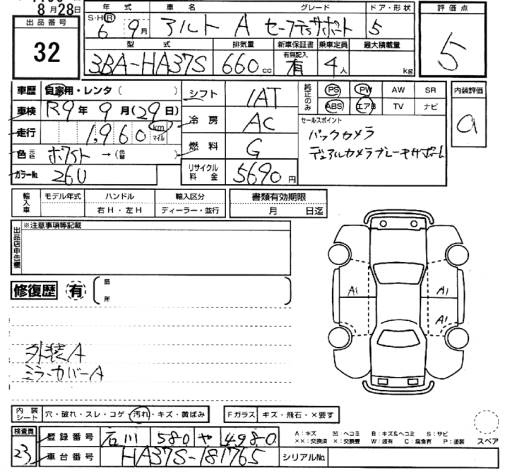 8月28日
出品番号
32
年式 車名 グレード ドア・形状
S・H・R 6年 9月 アルト A セーフティサポート 5
型式 排気量 新車保証書 有無記入 乗車定員 最大積載量
3BA-HA37S 660cc 有 4人 kg
評価点
5
車歴 自家用・レンタ( )
車検 R9年 9月(29日)
走行 1,960 km マイル
色 元色 ホワイト→(色替 )
カラーNo. 26U
シフト IAT
冷房 AC
燃料 G
リサイクル料金 5690円
純正のみ PS PW AW SR
ABS エアB TV ナビ
セールスポイント
バックカメラ
デュアルカメラブレーキサポート
内装評価
a
輸入車 モデル年式 ハンドル 輸入区分
右H・左H ディーラー・並行
書類有効期限
月 日迄
出品店申告欄 ※注意事項等記載
修復歴 有 ( 箇所 )
A1 A1
外装A
ミラーカバーA
内装シート 穴・破れ・スレ・コゲ・汚れ・キズ・黄ばみ
Fガラス キズ・飛石・×要す
検査員 23
登録番号 石川 580 や 4980
車台番号 HA37S-181765
シリアルNo.
A:キズ U:ヘコミ B:キズ&ヘコミ S:サビ
××:交換済 ×:交換要 W:波有 C:腐食有 P:塗装
スペア